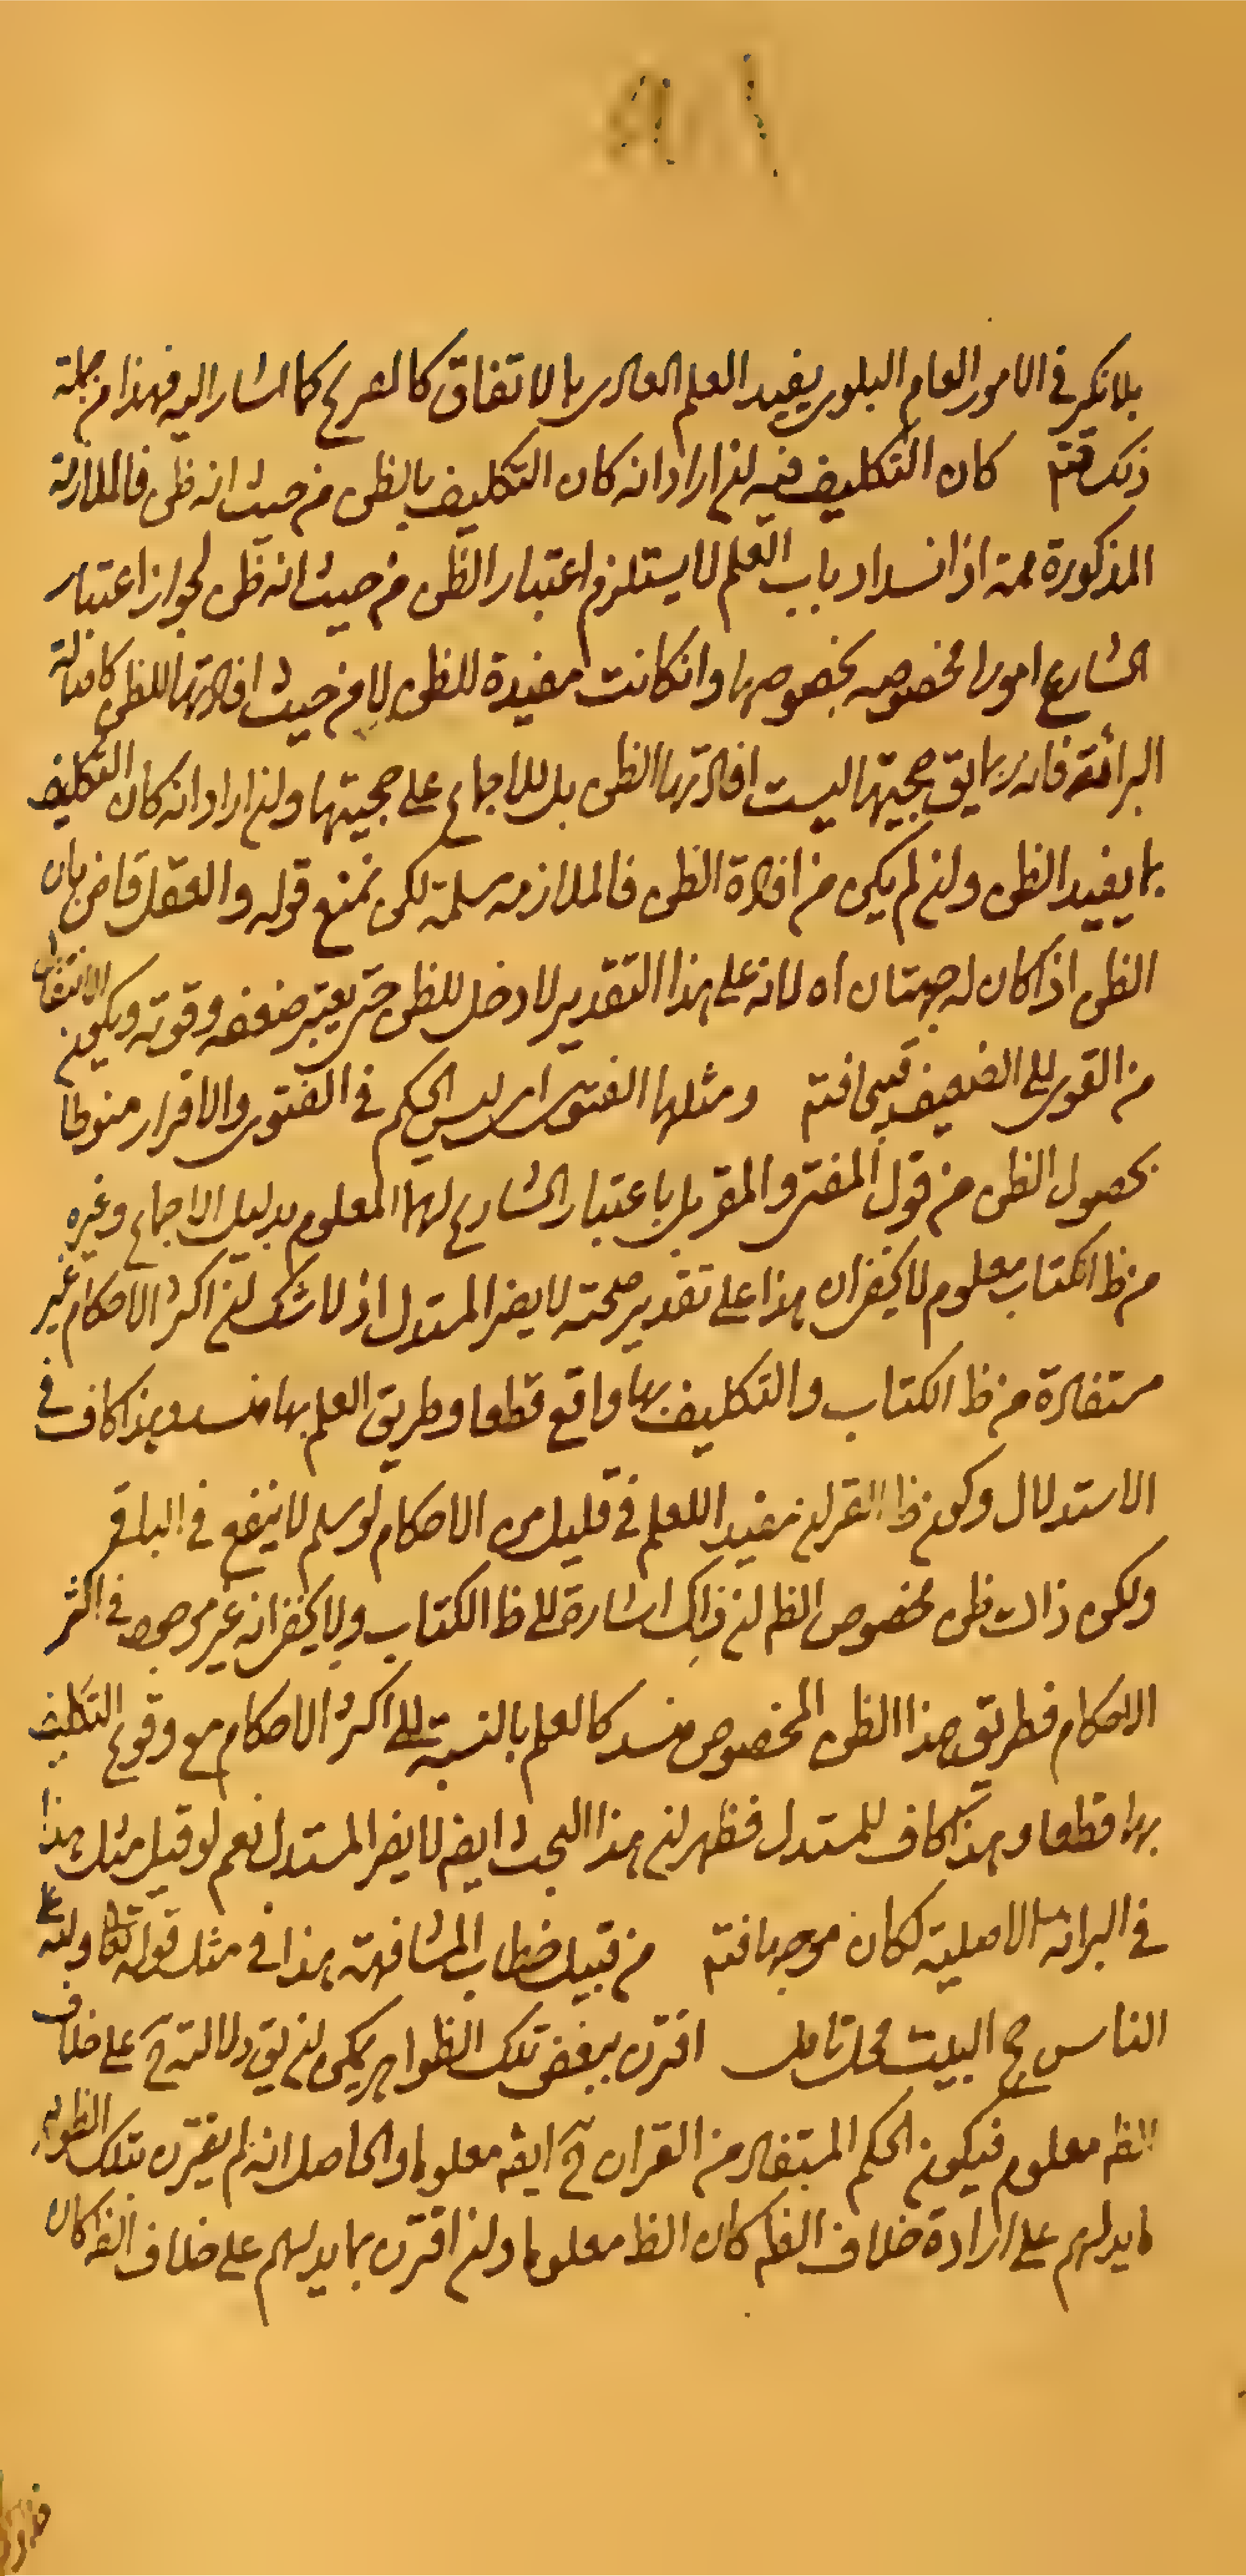 بلا نكير في الامور العام البلوى يفيد العلم العادى بالاتفاق كالشرع كما اشار اليه فهذا من جملة
ذلك فتم كان التكليف فيه لن اراد انه كان التكليف بالظن من حيث انه ظن فالملازمة
المذكورة ممة اذ انسداد باب العلم لا يستلزم اعتبار الظن من حيث انه ظن لجواز اعتبار
الشارع امورا مخصوصه بخصوصها وانكانت مفيدة للظن لا من حيث افادتها للظن كاصالة
البرائة فانه ربما يق حجيتها ليست افادتها الظن بل للاجماع على حجيتها ولن اراد انه كان التكليف
بما يفيد الظن ولن لم يكن من افادة الظن فالملازمه سلمة لكن نمنع قوله والعقل قاض بان
الظن اذا كان له جهتان اه لانه على هذا التقدير لا دخل للظن حتى يعتبر ضعفه وقوته ويكون الانتقال
من القوى الى الضعيف قبيحا فتم ومثلها الفتوى اى ليس الحكم في الفتوى والاقرار منوطا
بحصول الظن من قول المفتى والمقر بل باعتبار الشارع لهما المعلوم بدليل الاجماع وغيره
من ظ الكتاب معلوم لا يخفى ان هذا على تقدير صحته لا يضر المستدل اذ لا شك لن اكثر الاحكام غير
مستفادة من ظ الكتاب والتكليف بها واقع قطعا وطريق العلم بها منسد وهذا كاف في
الاستدلال وكون ظ القران مفيدا للعلم في قليل من الاحكام لو سلم لا ينفع في الباقى
ولكن ذلك ظن مخصوص الظ لن ذلك اشارة الى ظ الكتاب ولا يخفى انه غير موجود في اكثر
الاحكام فطريق هذا الظن المخصوص منسد كالعلم بالنسبة الى اكثر الاحكام مع وقوع التكليف
بها قطعا وهذا كاف للمستدل فظهر لن هذا البحث ايضه لا يضر المستدل نعم لو قيل مثل هذا
في البرائة الاصلية لكان موجها فتم من قبيل خطاب المشافهة هذا في مثل قوله تعالى ولله على
الناس حج البيت محل تامل اقترن ببعض تلك الظواهر يمكن لن يق دلالته ح على خلاف
الظ معلوم فيكون الحكم المستفاد من القران ح ايضه معلوما والحاصل انه لم يقترن بتلك الظواهر
ما يدلهم على ارادة خلاف الظ كان الظ معلوما ولن اقترن بما يدلهم على خلاف الظ كان